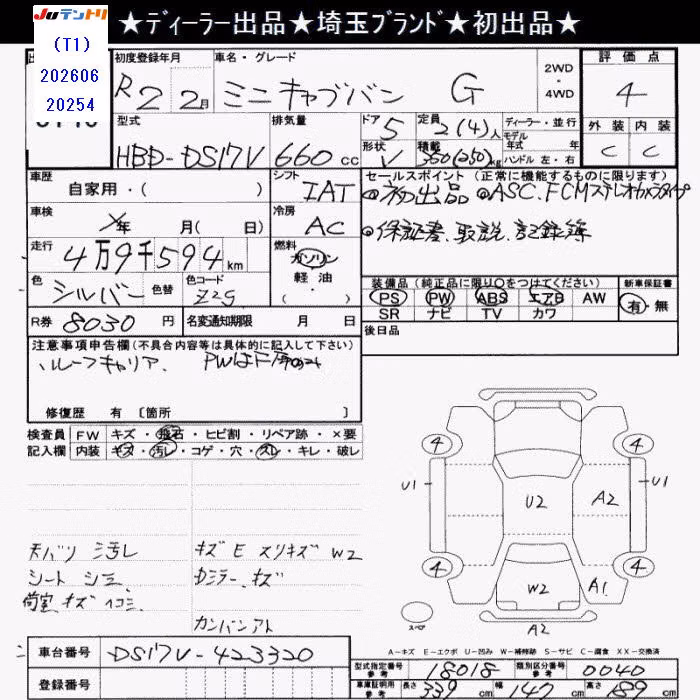 Juテントリ
★ディーラー出品★埼玉ブランド★初出品★
(T1)
202606
20254
初度登録年月
R2 2月
車名・グレード
ミニキャブバン G
2WD
・
4WD
評価点
4
外装 内装
C C
型式
HBD-DS17V
排気量
660 cc
ドア 5
形状 V
定員 2(4)人
積載 350(250)kg
ディーラー・並行
モデル
年式 年
ハンドル 左・右
車歴
自家用・( )
シフト
IAT
セールスポイント(正常に機能するものに限ります)
初出品 ASC.FCMステレオカメラタイプ
保証書.取説.記録簿
車検
年 月( 日)
冷房
AC
走行
4万9千594km
燃料
ガソリン
軽油・
( )
色
シルバー
色替
色コード
Z2S
装備品(純正品に限り○をつけてください)
PS PW ABS エアB AW
SR ナビ TV カワ
新車保証書
有・無
R券 8030 円
名変通知期限 月 日
後日品
注意事項申告欄(不具合内容等は具体的に記入して下さい)
ルーフキャリア. PWはF席のみ
修復歴 有〔箇所 〕
検査員
記入欄
FW キズ・飛石・ヒビ割・リペア跡・×要
内装 キズ・汚れ・コゲ・穴・スレ・キレ・破レ
天バリ シ汚レ
シート シミ
荷室 キズ ヘコミ
キズ E スリキズ W2
Dミラー キズ
カンバンアト
4 4
U1 U2 A2 U1
4 4
W2 A1
A2
スペア
A-キズ E-エクボ U-凹み W-補修跡 S-サビ C-腐食 XX-交換済
車台番号 DS17V-423320
登録番号
型式指定番号
参考
18018
類別区分番号
参考
0040
車庫証明用
参考
長さ 339 cm 幅 147 cm 高さ 189 cm